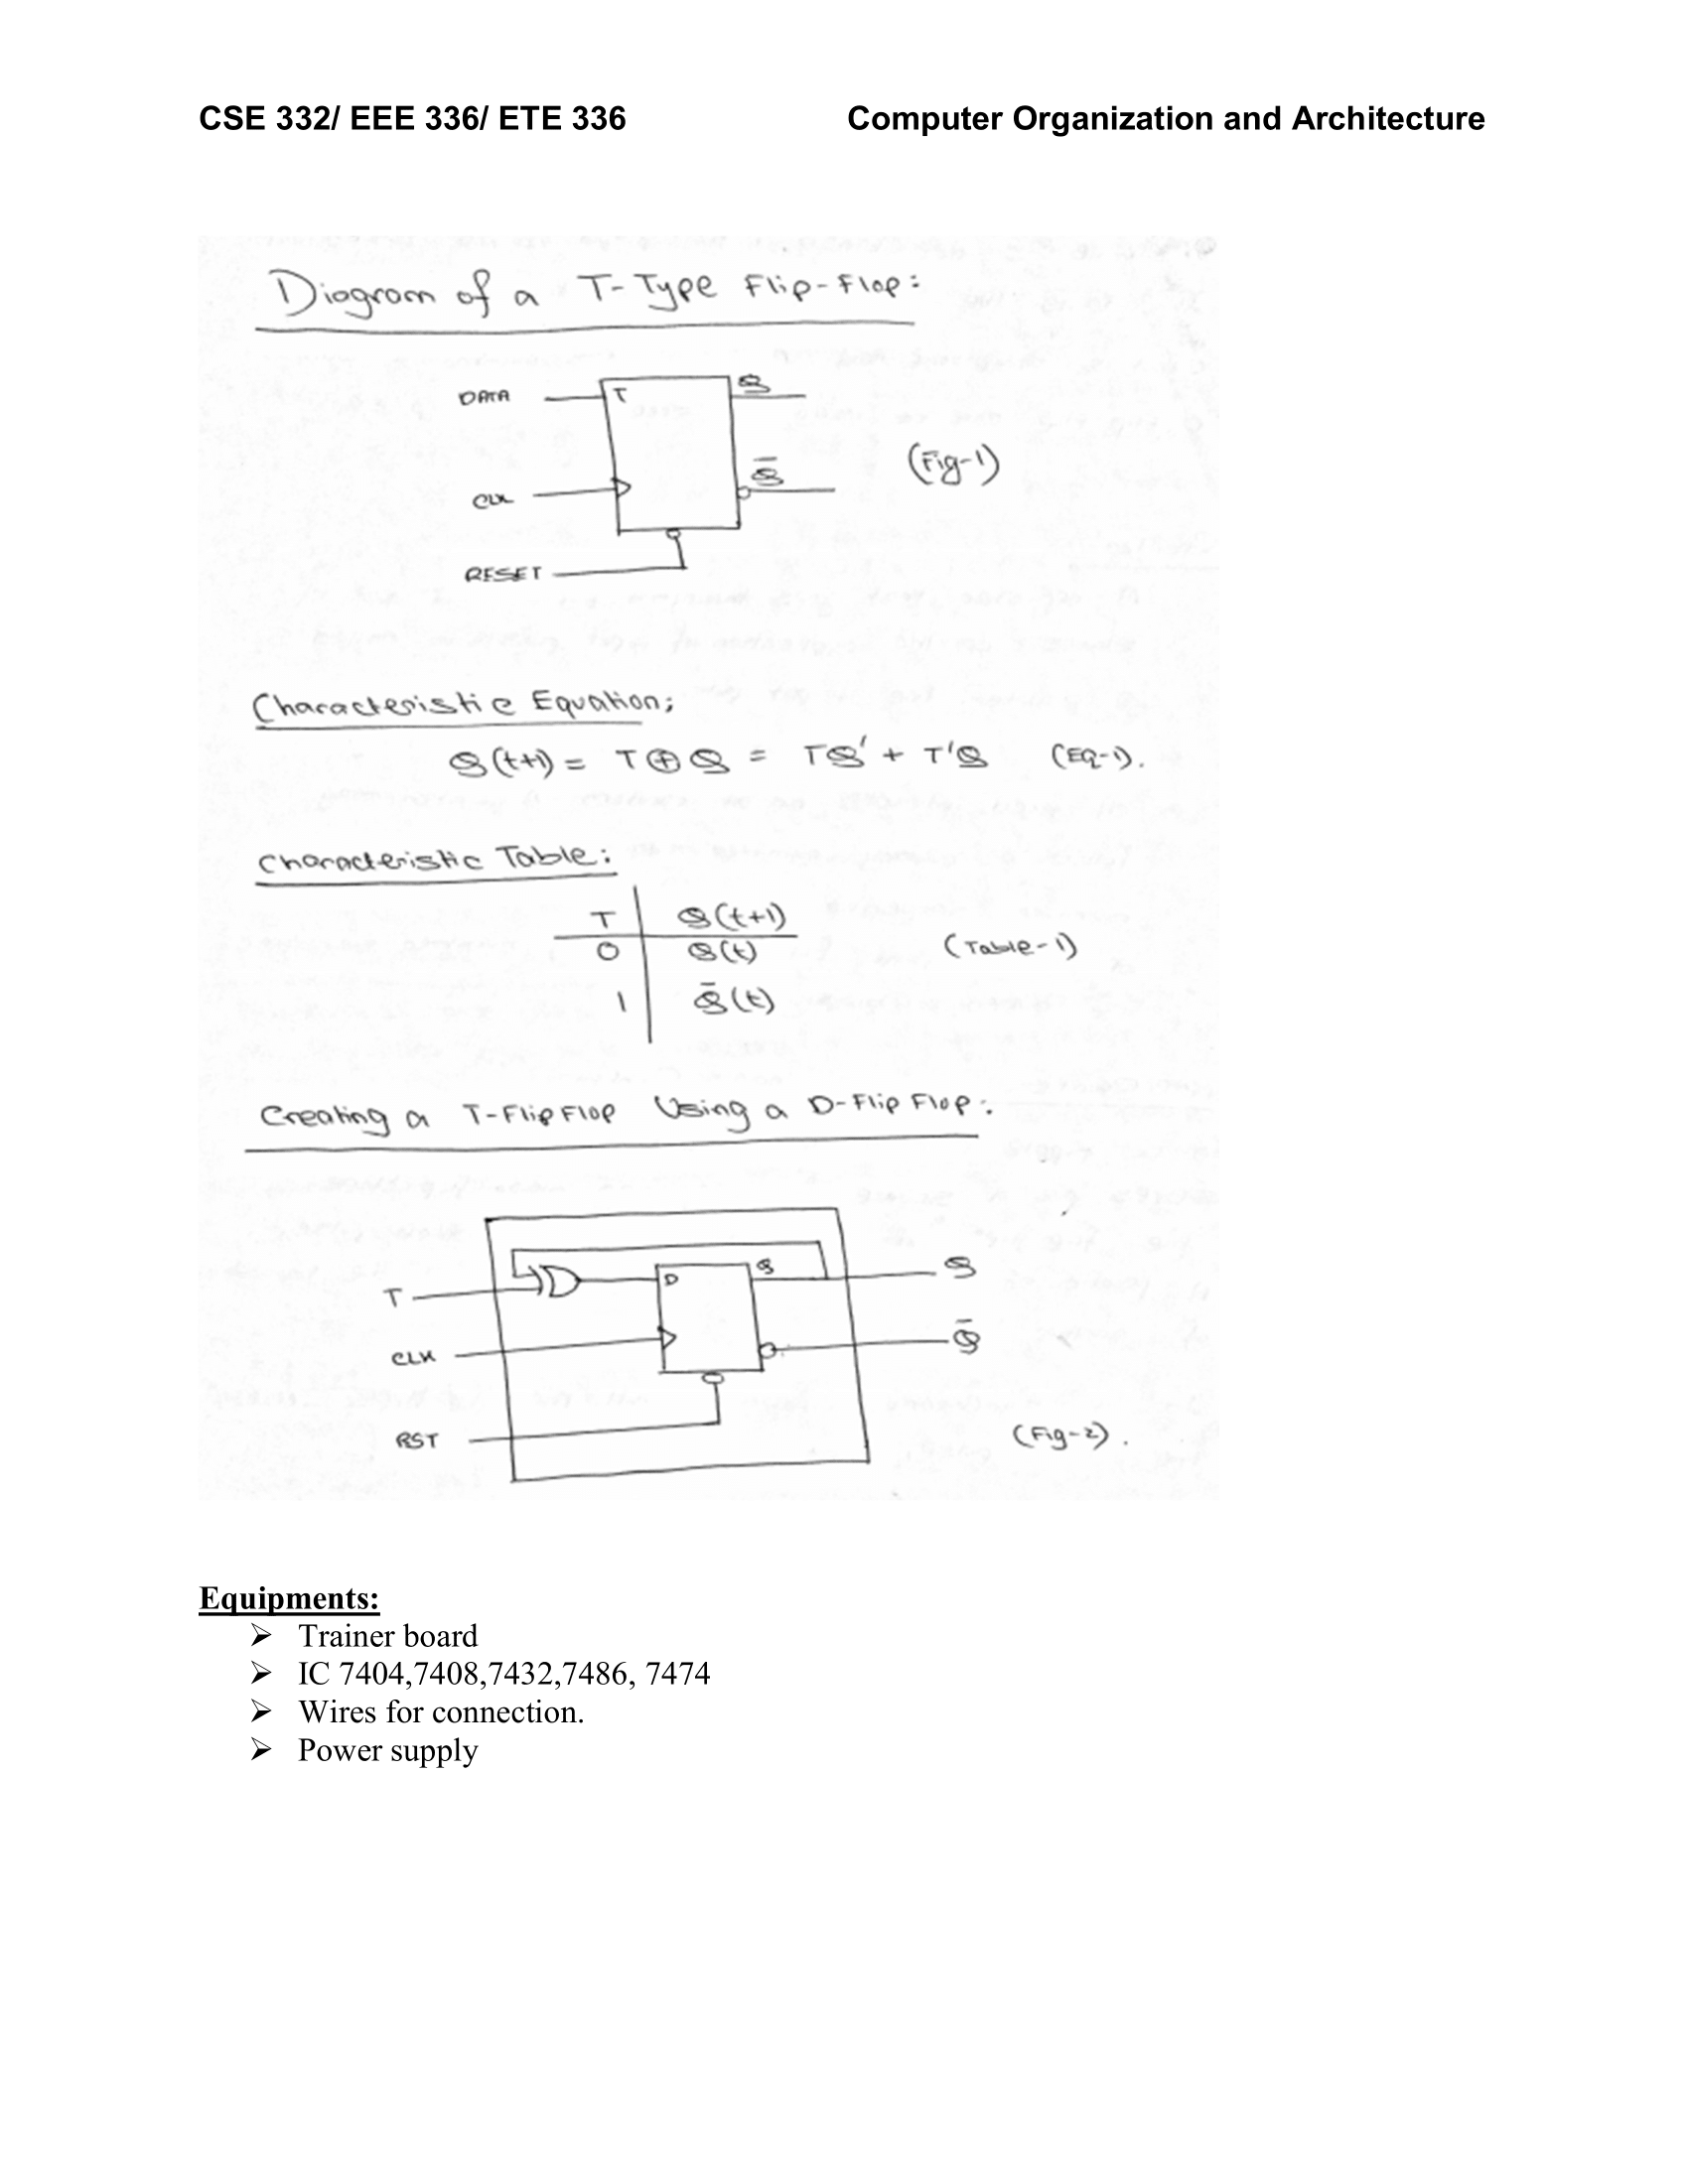 CSE 332/ EEE 336/ ETE 336 Computer Organization and Architecture
Diagram of a T-Type Flip-Flop:
DATA T Q
Q̅
(Fig-1)
CLK
RESET
Characteristic Equation;
Q(t+1) = T⊕Q = TQ' + T'Q (EQ-1).
Characteristic Table:
T Q(t+1)
0 Q(t) (Table-1)
1 Q̅(t)
Creating a T-FlipFlop Using a D-Flip Flop:
T D Q Q
CLK Q̅
RST (Fig-2).
Equipments:
➢ Trainer board
➢ IC 7404,7408,7432,7486, 7474
➢ Wires for connection.
➢ Power supply